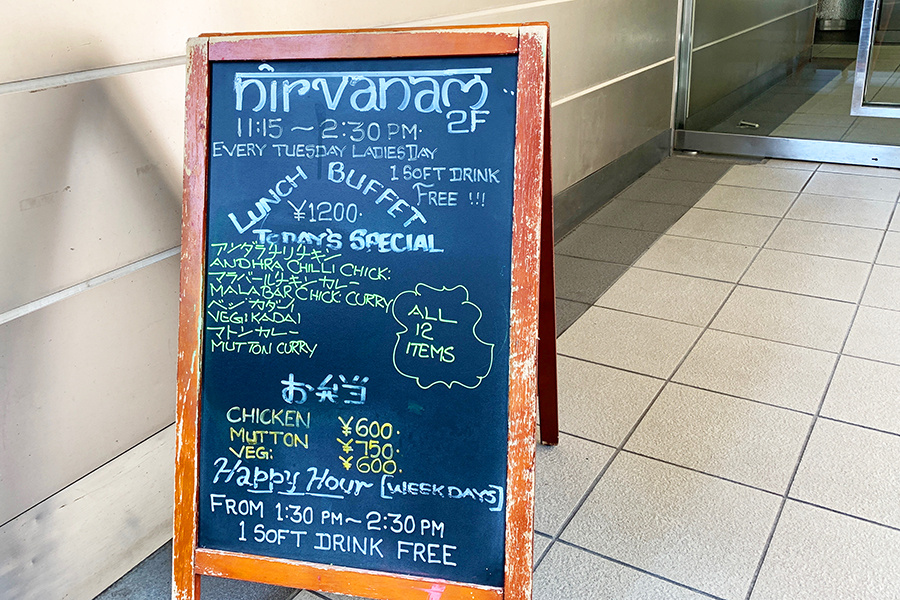 nirvanam
2F
11:15 ~ 2:30 PM.
EVERY TUESDAY LADIES DAY
1 SOFT DRINK
FREE !!!
LUNCH BUFFET
¥1200.
TODAY'S SPECIAL
アンダラチリチキン
ANDHRA CHILLI CHICK:
マラバールチキンカレー
MALABAR CHICK: CURRY
ベジカダイ
VEG: KADAI
マトンカレー
MUTTON CURRY
ALL
12
ITEMS
お弁当
CHICKEN ¥600.
MUTTON ¥750.
VEG: ¥600.
Happy Hour [WEEK DAYS]
FROM 1:30 PM ~ 2:30 PM
1 SOFT DRINK FREE